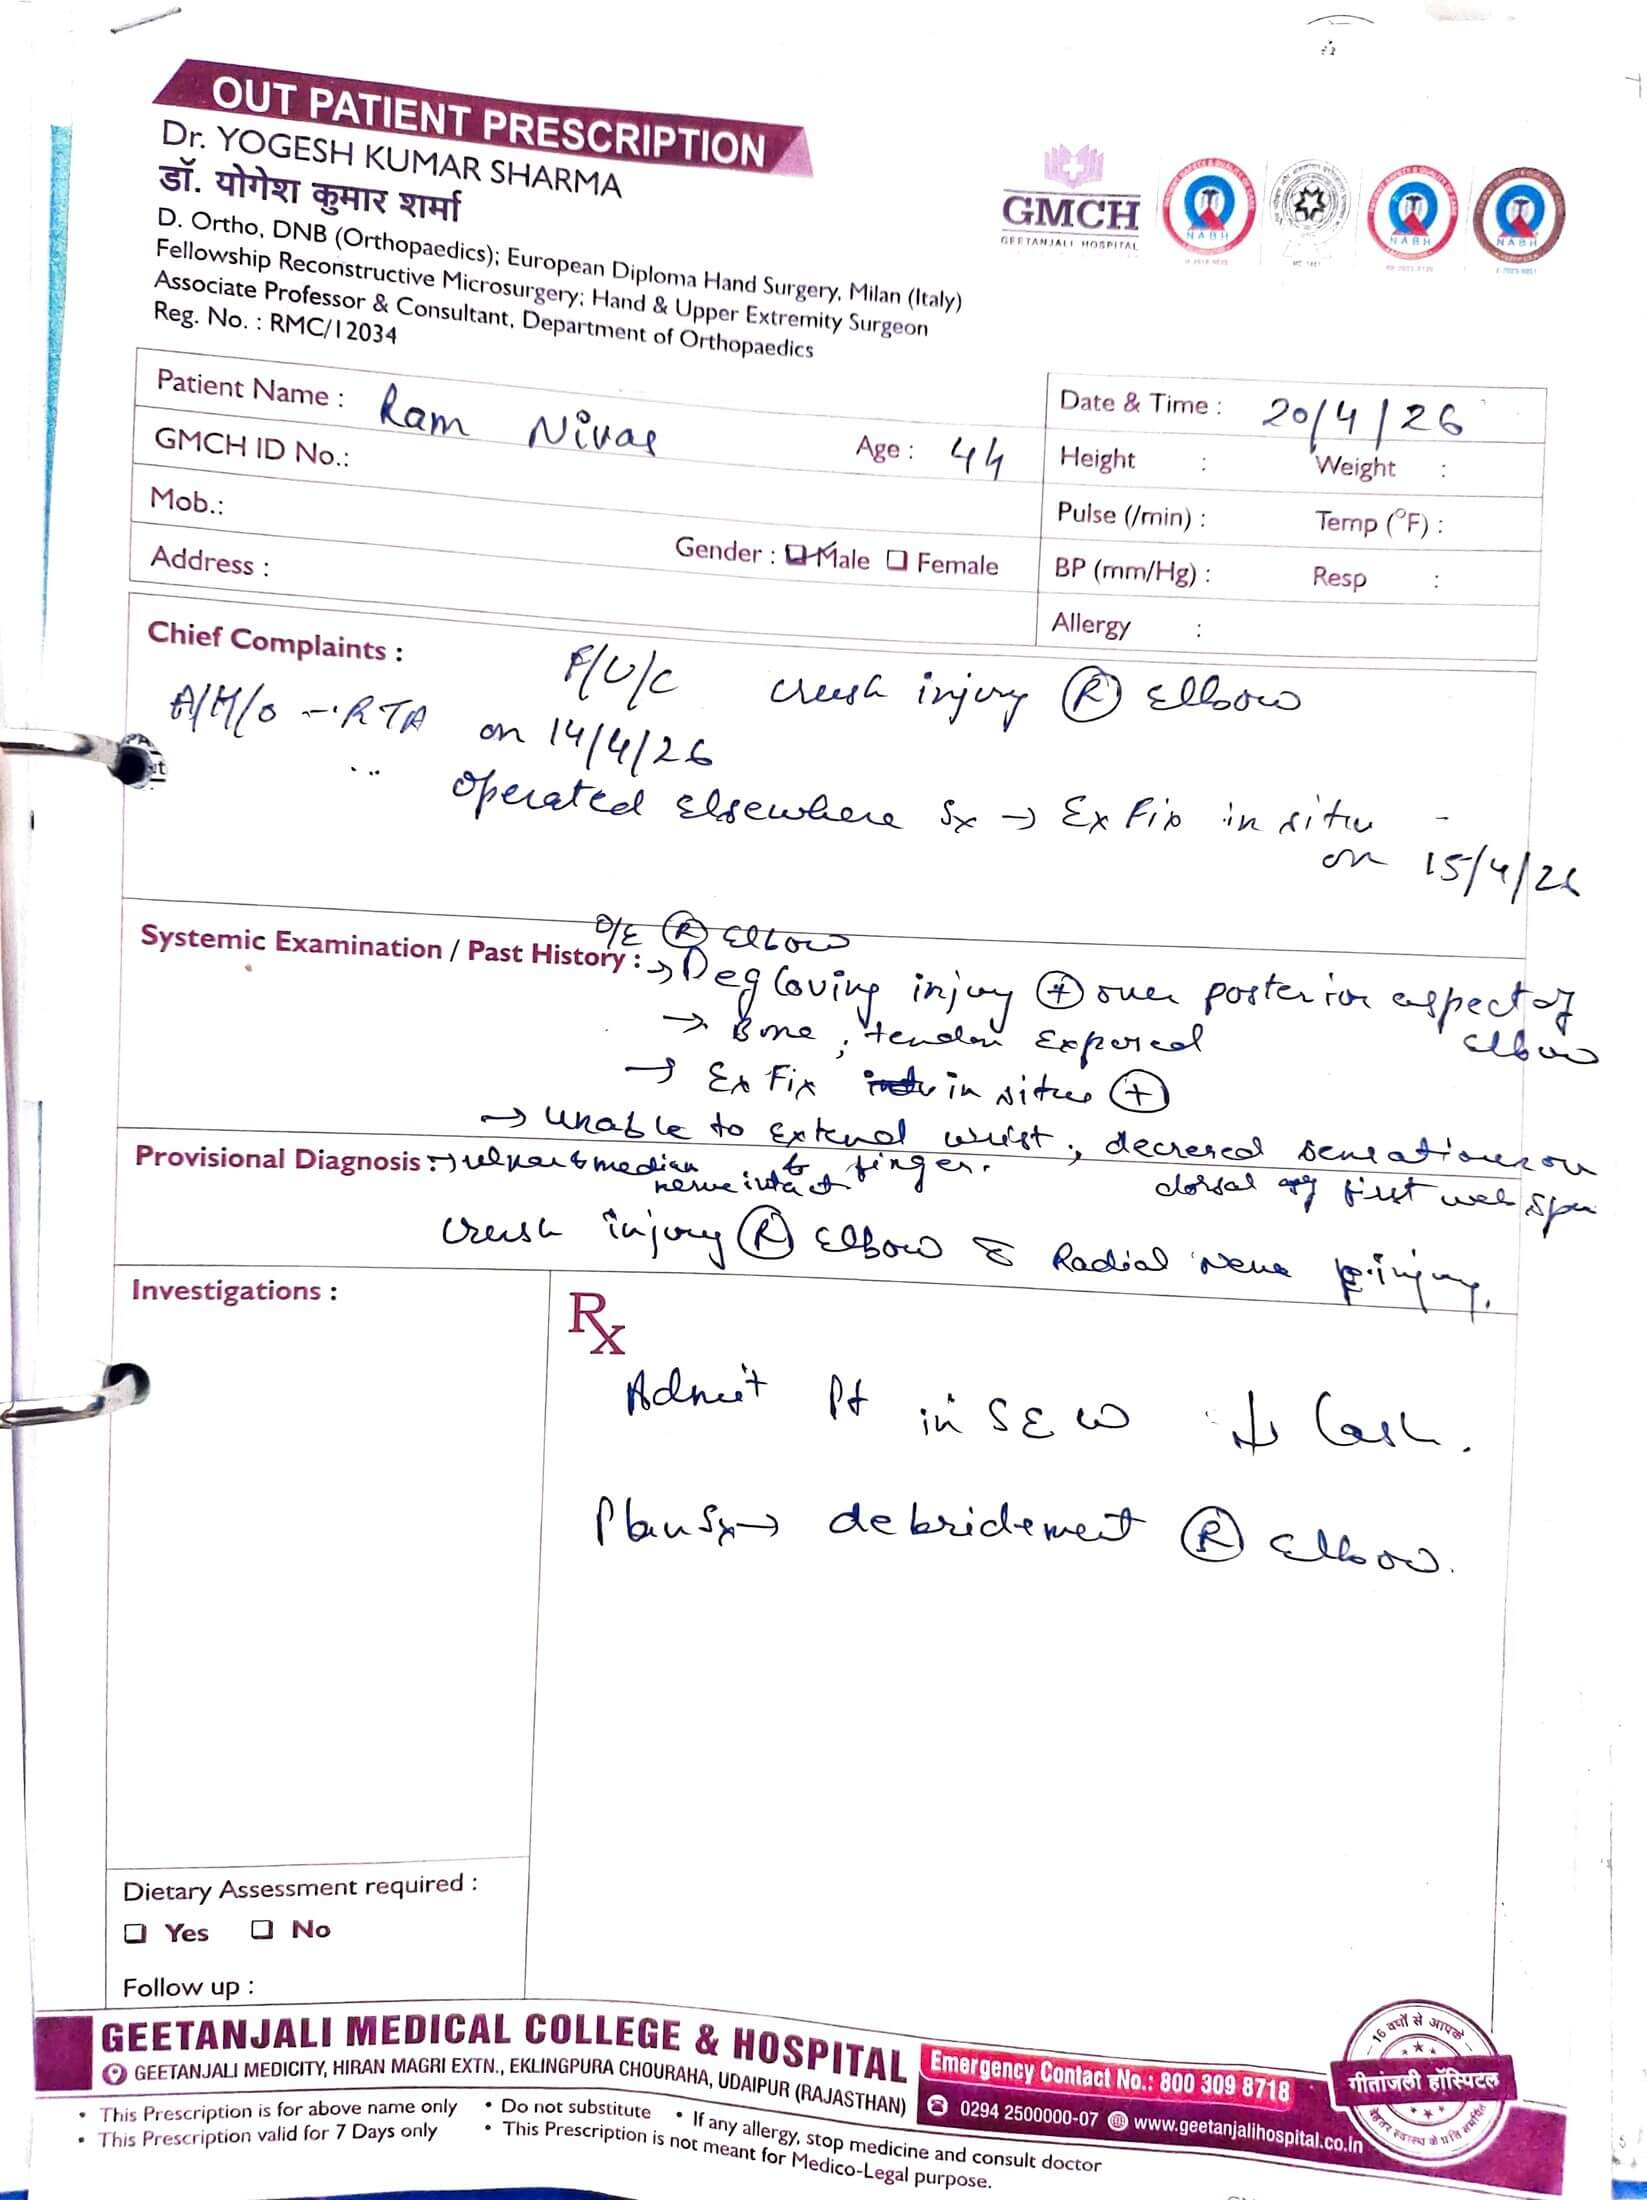 OUT PATIENT PRESCRIPTION
Dr. YOGESH KUMAR SHARMA
डॉ. योगेश कुमार शर्मा
D. Ortho, DNB (Orthopaedics); European Diploma Hand Surgery, Milan (Italy)
Fellowship Reconstructive Microsurgery; Hand & Upper Extremity Surgeon
Associate Professor & Consultant, Department of Orthopaedics
Reg. No. : RMC/12034
GMCH
GEETANJALI HOSPITAL
NABH
NABH
NABH
Patient Name : Ram Nivas
Age : 44
GMCH ID No.:
Mob.:
Gender : Male Female
Address :
Date & Time : 20/4/26
Height : Weight :
Pulse (/min) : Temp (°F) :
BP (mm/Hg) : Resp :
Allergy :
Chief Complaints : F/U/C crush injury (R) Elbow
A/H/O - RTA on 14/4/26
operated Elsewhere Sx → Ex Fix in situ
on 15/4/26
O/E (R) Elbow
Systemic Examination / Past History : → Degloving injury (+) over posterior aspect of
Elbow
→ Bone, tendon Exposed
→ Ex Fix in situ (+)
→ unable to extend wrist, decreased sensation on
& finger. dorsal first web
Provisional Diagnosis : → ulnar & median
nerve intact
Crush injury (R) Elbow Radial Nerve injury.
Investigations :
Rx
Admit Pt in SEW Cash.
Plan Sx → debridement (R) Elbow.
Dietary Assessment required :
Yes No
Follow up :
GEETANJALI MEDICAL COLLEGE & HOSPITAL
GEETANJALI MEDICITY, HIRAN MAGRI EXTN., EKLINGPURA CHOURAHA, UDAIPUR (RAJASTHAN)
Emergency Contact No.: 800 309 8718
0294 2500000-07 www.geetanjalihospital.co.in
16 वर्षों से आपके
गीतांजली हॉस्पिटल
• This Prescription is for above name only • Do not substitute • If any allergy, stop medicine and consult doctor
• This Prescription valid for 7 Days only • This Prescription is not meant for Medico-Legal purpose.